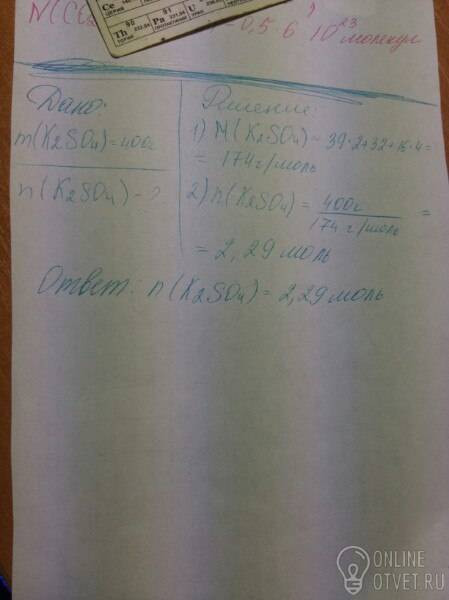 N(Cl₂ = 0,5 6 10²³ молекул
Ce
церий
90 91 U
Th Pa
торий
Дано:
m(K₂SO₄)=400г
n(K₂SO₄)-?
Решение:
1) M(K₂SO₄)=39·2+32+16·4=
=174г/моль
2) n(K₂SO₄) = 400г / 174 г/моль =
= 2,29 моль
Ответ: n(K₂SO₄)=2,29 моль
ONLINE
OTVET.RU